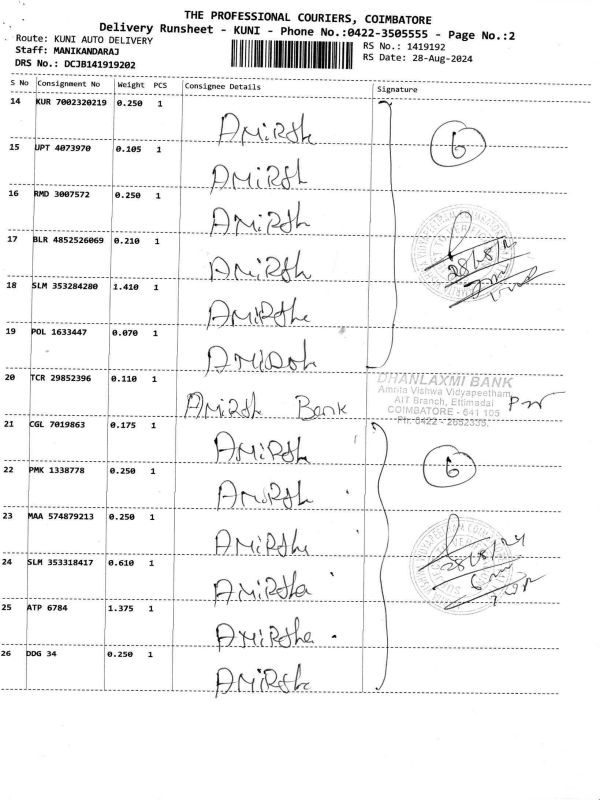 THE PROFESSIONAL COURIERS, COIMBATORE
Delivery Runsheet - KUNI - Phone No.:0422-3505555 - Page No.:2
Route: KUNI AUTO DELIVERY
RS No.: 1419192
Staff: MANIKANDARAJ
RS Date: 28-Aug-2024
DRS No.: DCJB141919202
S No Consignment No Weight PCS Consignee Details Signature
14 KUR 7002320219 0.250 1
AMiRSh
6
15 UPT 4073970 0.105 1
AMiRSh
16 RMD 3007572 0.250 1
AMiRSh
17 BLR 4852526069 0.210 1
AMiRSh
28/8/
18 SLM 353284280 1.410 1
AMiRShe
19 POL 1633447 0.070 1
20 TCR 29852396 0.110 1
AMiRSh Bank
DHANLAXMI BANK
Amrita Vishwa Vidyapeetham
AIT Branch, Ettimadai
COIMBATORE - 641 105
Ph: 0422 - 2652335,
21 CGL 7019863 0.175 1
AMiRSh
6
22 PMK 1338778 0.250 1
AMiRSh
23 MAA 574879213 0.250 1
AMiRShe
24 SLM 353318417 0.610 1
AMiRSha
28/8/24
25 ATP 6784 1.375 1
AMiRSha
26 DDG 34 0.250 1
AMiRSh